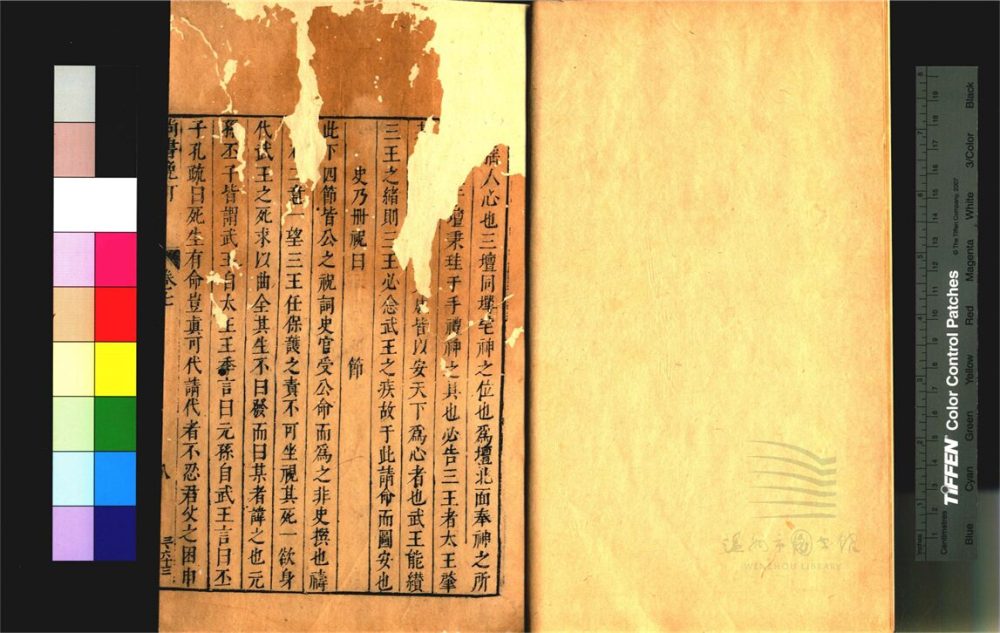 人心也三壇同墠宅神之位也爲壇北面奉神之所
壇秉珪于手禮神之具也必告三王者太王肇
皆以安天下爲心者也武王能纘
三王之緒則三王必念武王之疾故于此請命而圖安也
史乃冊祝曰 節
此下四節皆公之祝詞史官受公命而爲之非史撰也禱
二意一望三王任保護之責不可坐視其死一欲身
代武王之死求以曲全其生不曰發而曰某者諱之也元
孫丕子皆謂武王自太王王季言曰元孫自武王言曰丕
子孔疏曰死生有命豈真可代請代者不忍君父之困申
尚書晚訂 卷七 八
温州市圖书馆
WENZHOU LIBRARY
TIFFEN Color Control Patches
© The Tiffen Company, 2007
Inches
Centimetres
Blue Cyan Green Yellow Red Magenta White 3/Color Black